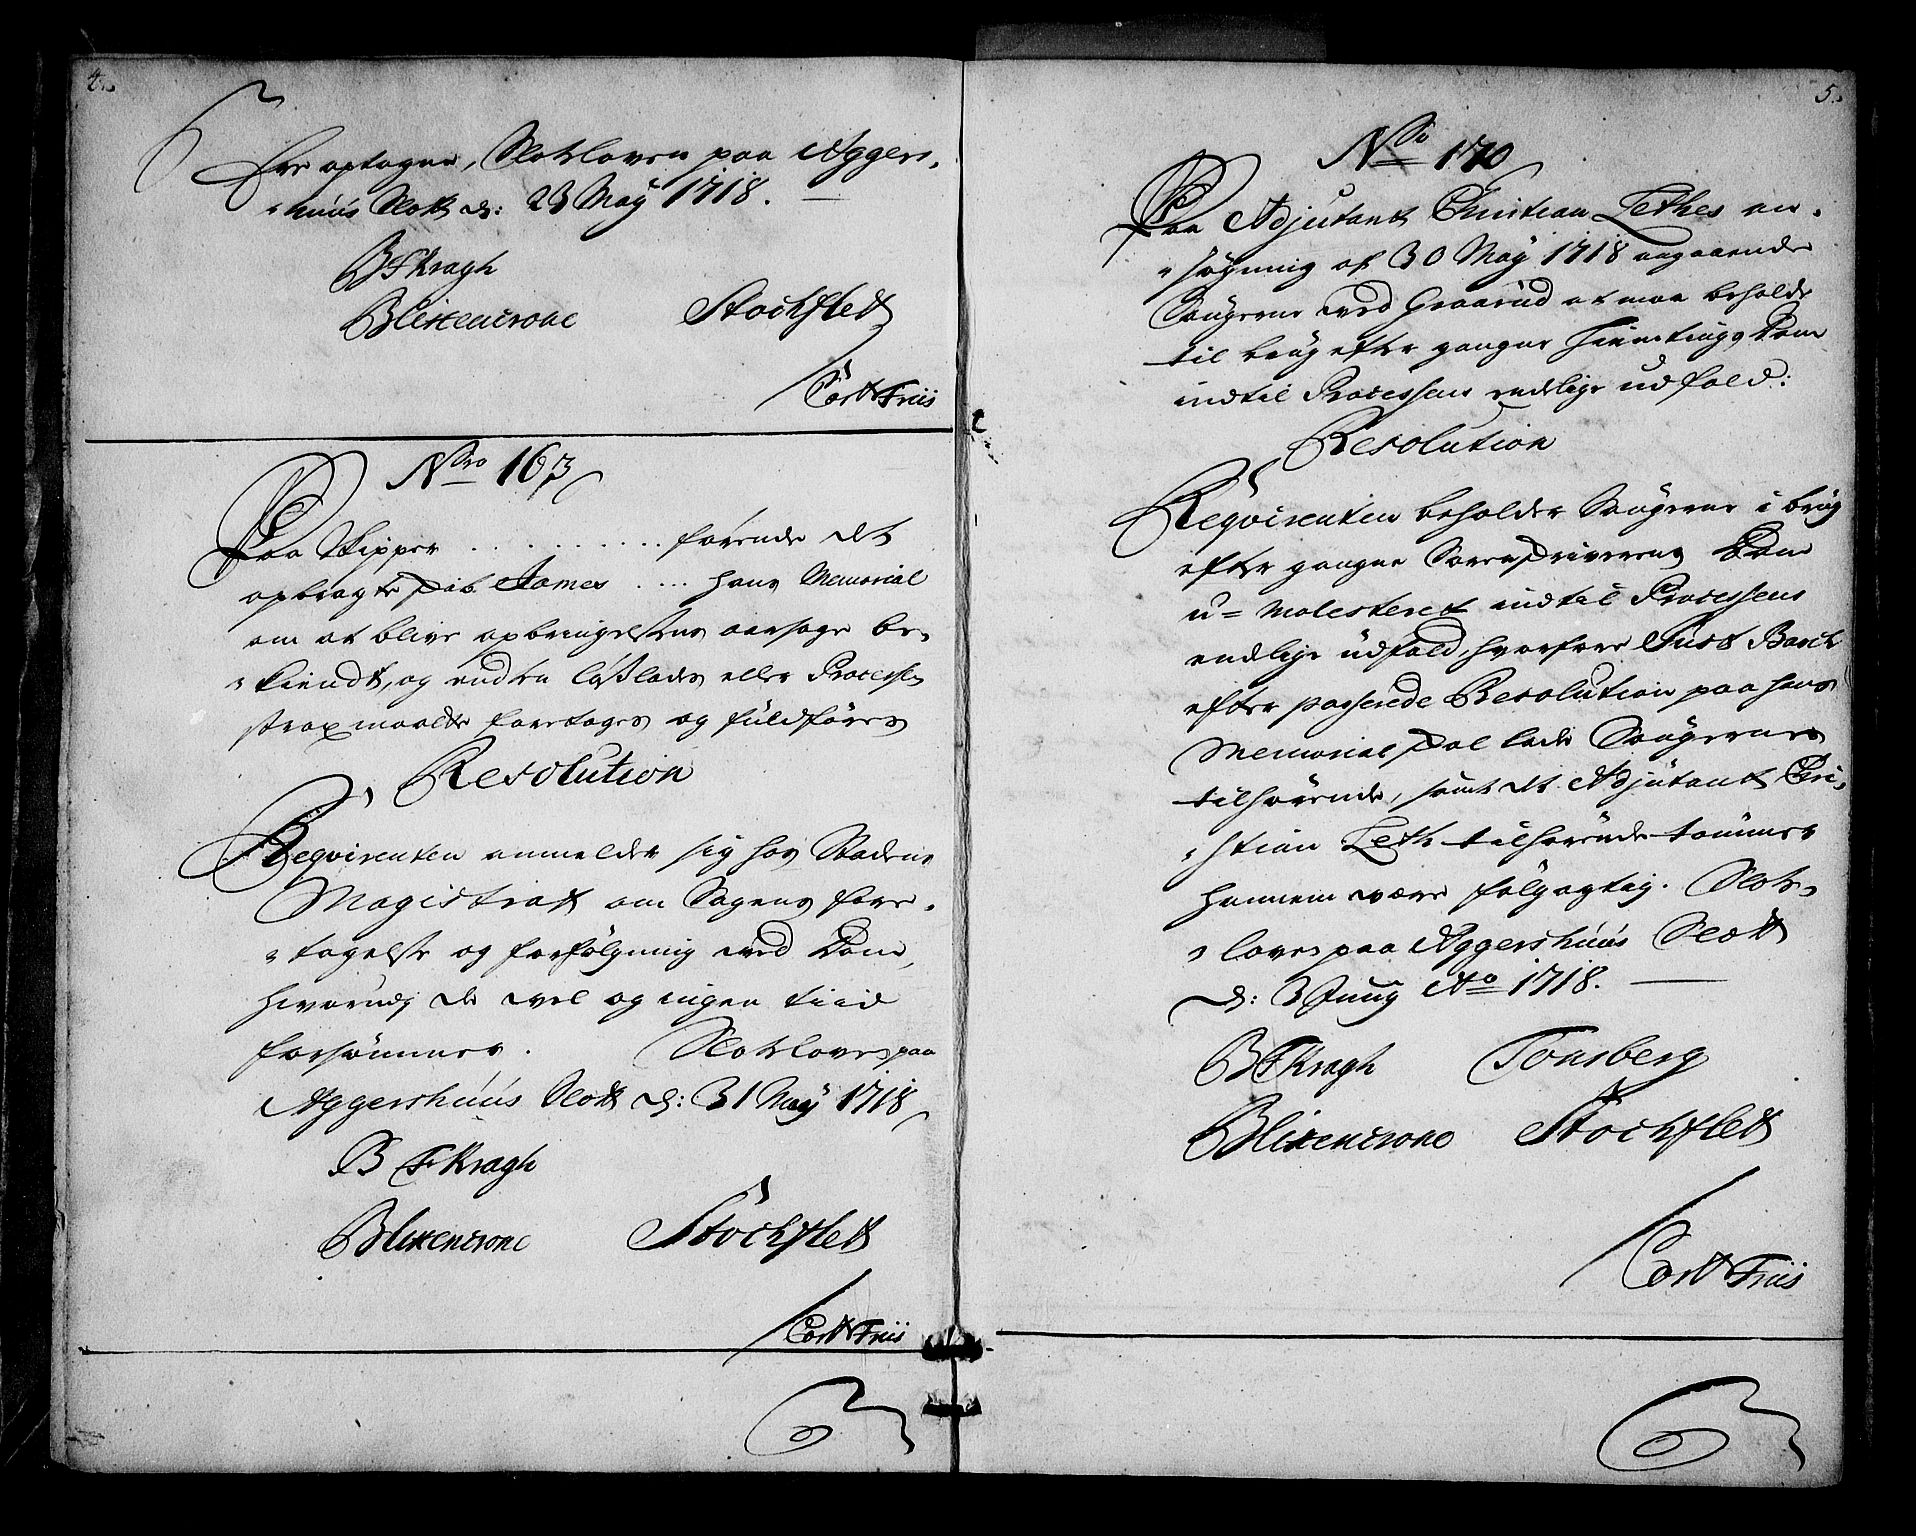 4.
før optagne, Slotsloven paa Agger-
huus Slott d: 23 May 1718.
B F Kragh
Blixencrone Stochflett
Cort Friis
Nro 163
Paa Skipper . . . . . . . . . . førende det
opbragte Skib James .... hans Memorial
om at blive opbringelsens aarsage be-
kiendt, og enten løßlades eller Processen
strax maatte foretages og fuldføres
Resolution
Reqvirenten anmelder sig hos Stadens
Magistrat om Sagens fore-
tagelse og forfølgning ved Dom,
hvorudj de vel og ingen tiid
forsømmer. Slotslovespaa
Aggershuus Slott d: 31 May 1718
B F Kragh
Blixencrone Stochflett
Cort Friis
5.
No 170
Paa Adjutant Christian Lethes an-
søgning af 30 May 1718 angaaende
Saugerne ved Graarud at maa beholde
til brug efter gangne Hiemtings Dom
indtil Processens endelige udfald:
Resolution
Reqvirenten beholder Saugerne i brug
efter gangne Sorenskriverens Dom
u-molesteret indtil Processens
endlige udfald, hvorfore Just Barch
efter passerede Resolution paa hans
Memorial skal lade Saugernes
tilhørende, samt det Adjutant Chri-
stian Leth tilhørende tømmer
hannem være følgagtig. Slots-
loves paa Aggershuus Slott
d: 3 Juny Ao 1718.
B F Kragh Tonsberg
Blixencrone Stochflett
Cort Friis